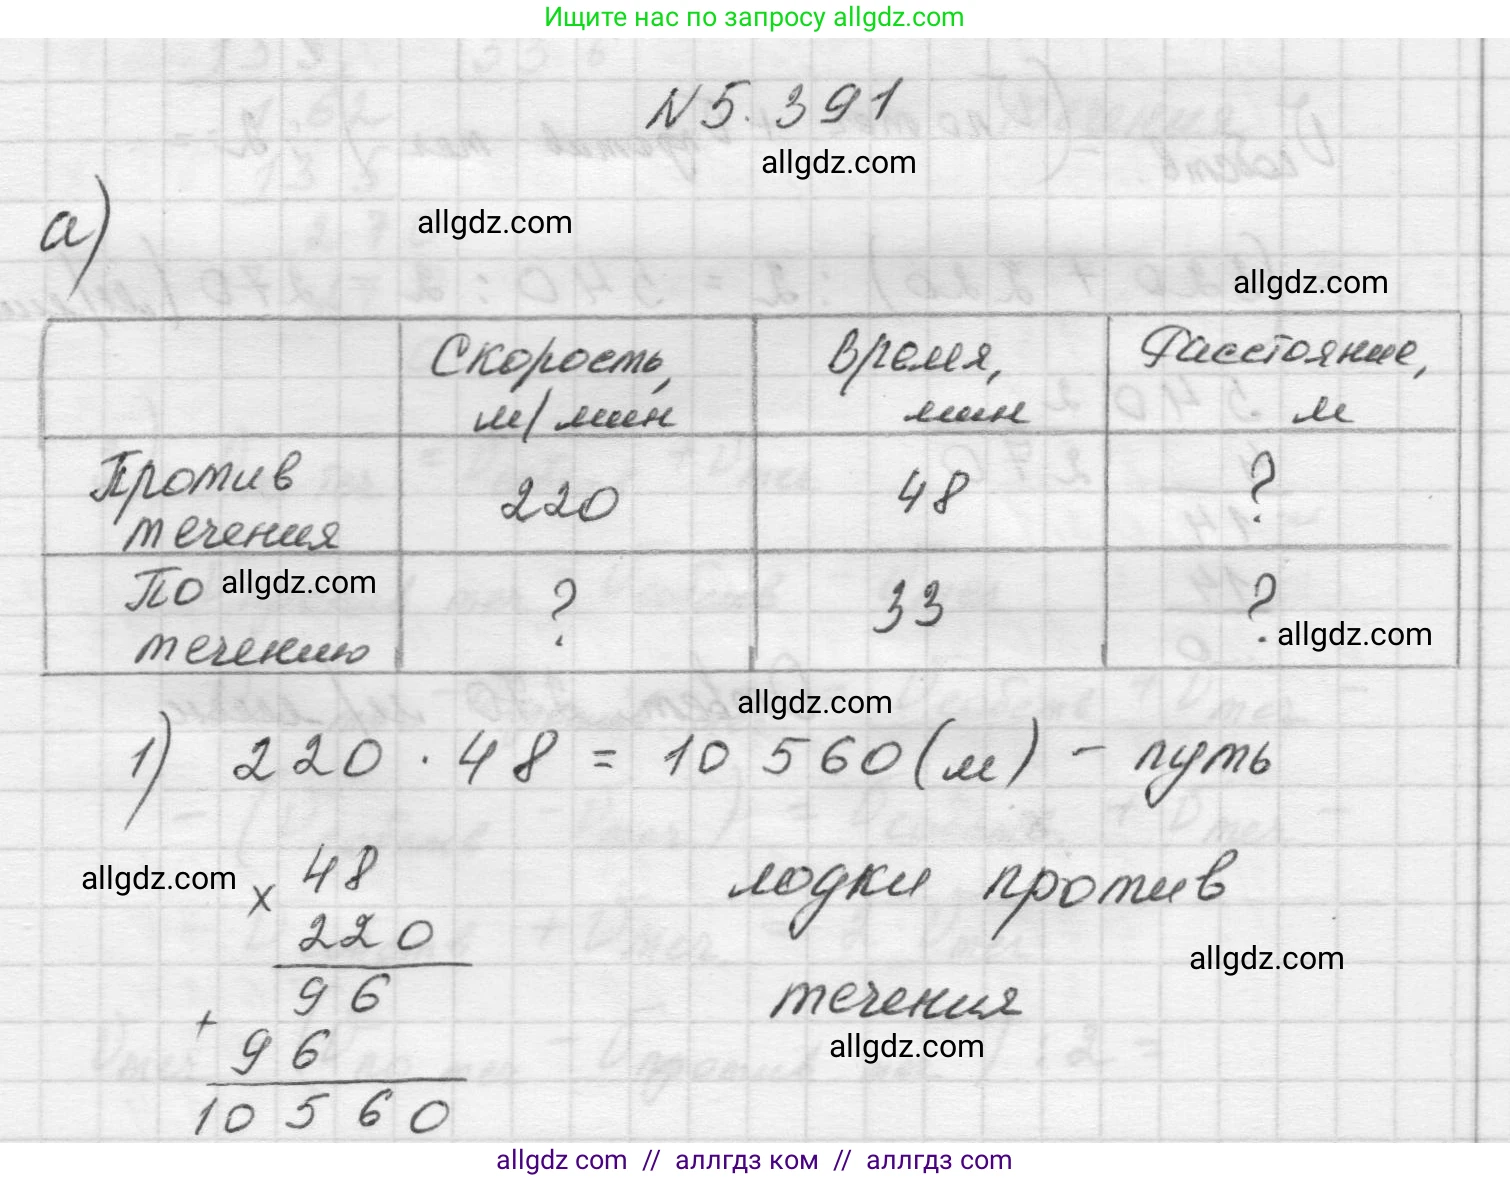 Ищите нас по запросу allgdz.com
N 5.391
allgdz.com
а)
allgdz.com
allgdz.com
Скорость, м/мин
Время, мин
Расстояние, м
Против течения
220
48
?
По течению
allgdz.com
?
33
?
allgdz.com
allgdz.com
1) 220 · 48 = 10 560 (м) - путь
лодки против
течения
allgdz.com
× 48
220
96
+
96
10 560
allgdz.com
allgdz.com
allgdz com // аллгдз ком // аллгдз com